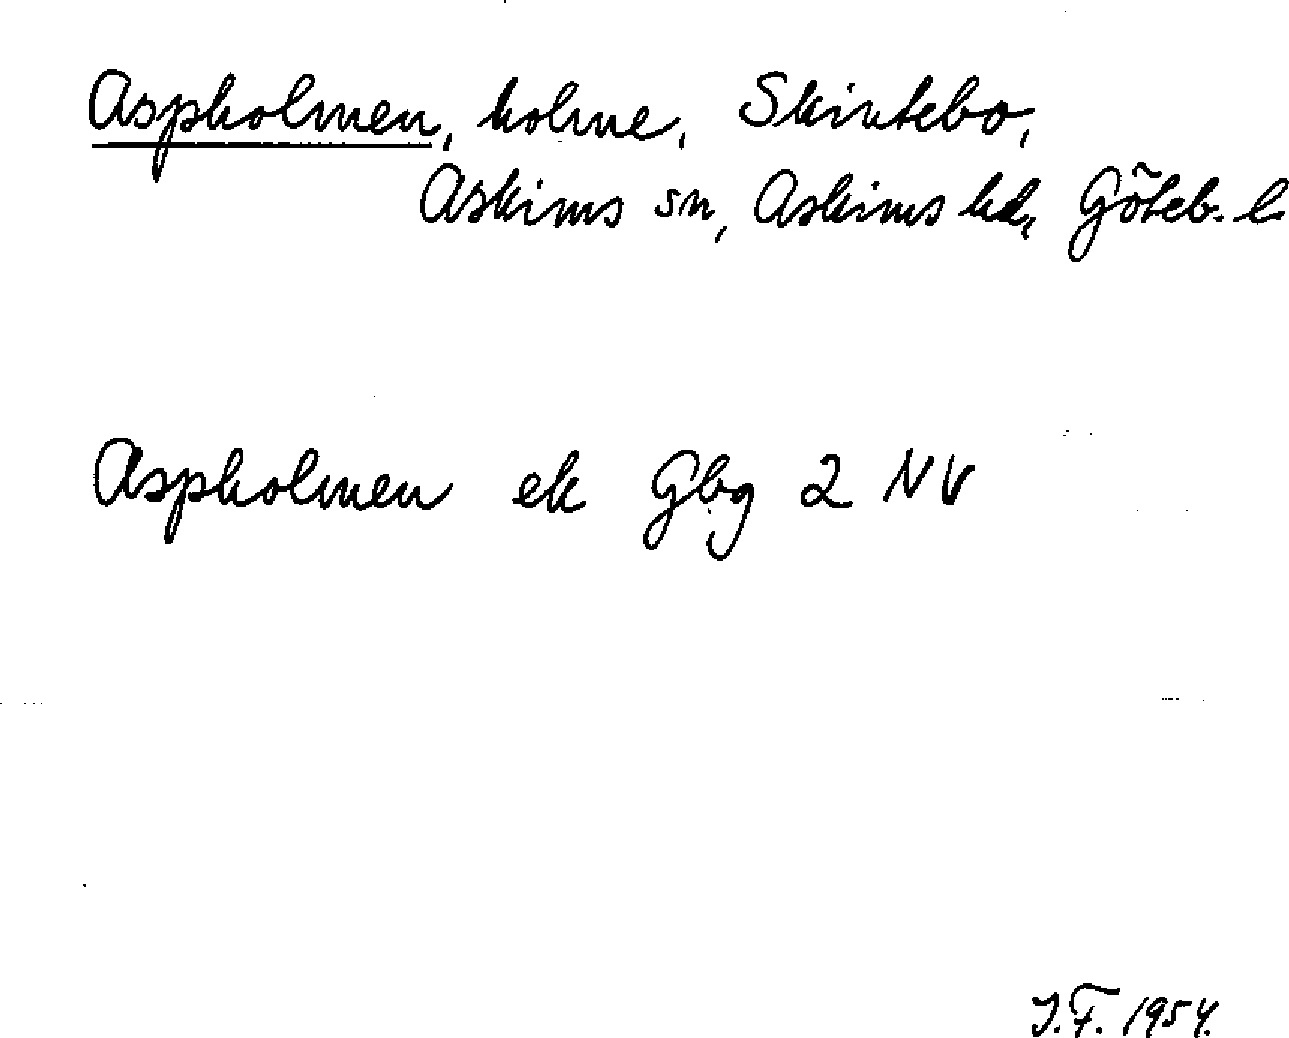 Aspholmen, holme, Skintebo,
Askims sn, Askims hd, Göteb. l.
Aspholmen ek Gbg 2 NV
J.F. 1954.